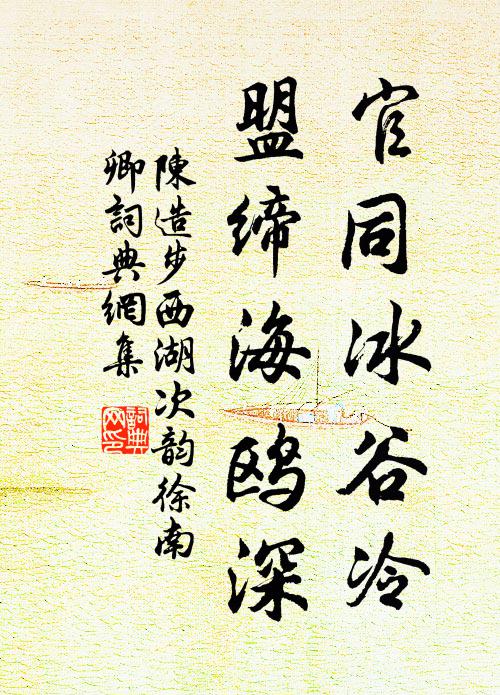 官同冰谷冷
盟缔海鸥深
陳造步西湖次韵徐南
卿詞典網集
詞典
网印